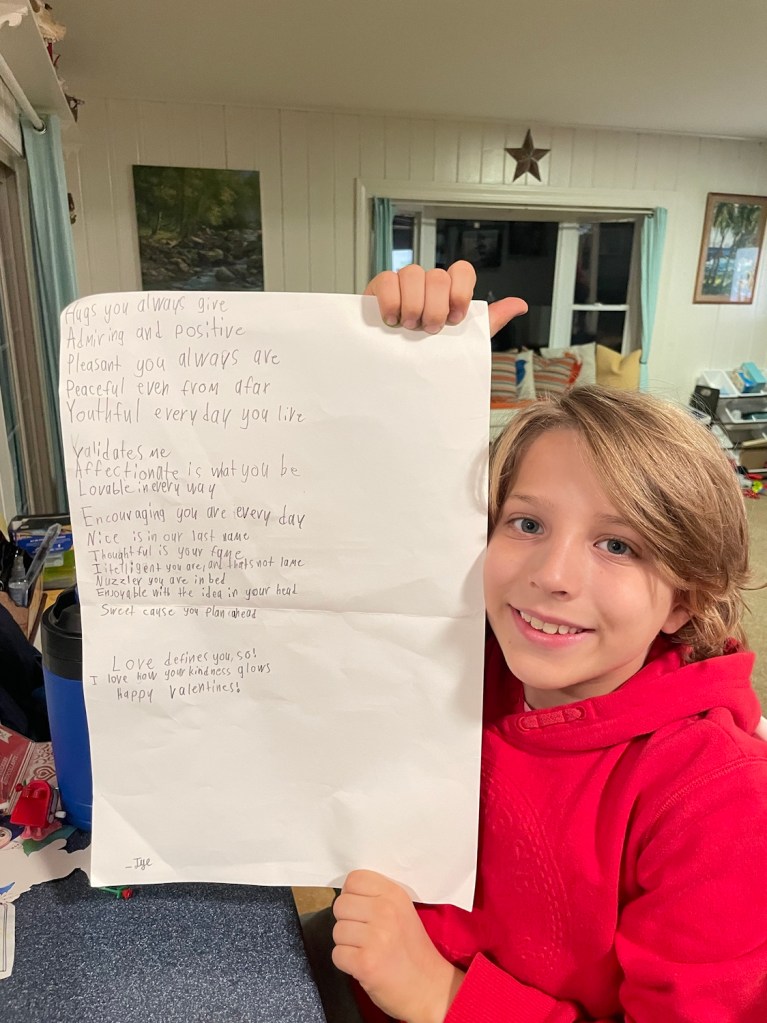 Hugs you always give
Admiring and positive
Pleasant you always are
Peaceful even from afar
Youthful every day you live
Validates me
Affectionate is what you be
Lovable in every way
Encouraging you are every day
Nice is in our last name
Thoughtful is your fame
Iitelligent you are, and thats not lame
Nuzzler you are in bed
Enjoyable with the idea in your head
Sweet cause you plan ahead
Love defines you, so!
I love how your kindness glows
Happy Valentines!